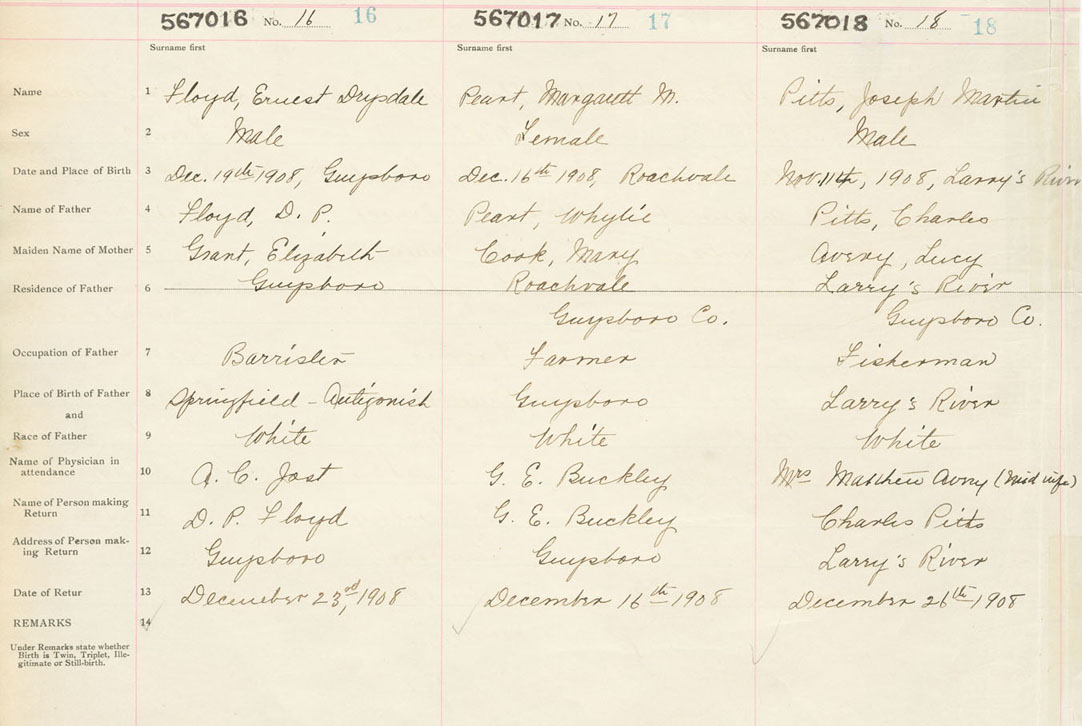 567016 No. 16 16 567017 No. 17 17 567018 No. 18 18
Surname first Surname first Surname first
Name 1 Floyd, Ernest Drysdale Peart, Margarett M. Pitts, Joseph Martin
Sex 2 Male Female Male
Date and Place of Birth 3 Dec. 19th 1908, Guysboro Dec. 16th 1908, Roachvale Nov. 11th, 1908, Larry's River
Name of Father 4 Floyd, D. P. Peart, Whylie Pitts, Charles
Maiden Name of Mother 5 Grant, Elizabeth Cook, Mary Avery, Lucy
Residence of Father 6 Guysboro Roachvale Larry's River
Guysboro Co. Guysboro Co.
Occupation of Father 7 Barrister Farmer Fisherman
Place of Birth of Father 8 Springfield - Antigonish Guysboro Larry's River
and
Race of Father 9 White White White
Name of Physician in
attendance 10 A. C. Jost G. E. Buckley Mrs Matthew Avery (Mid wife)
Name of Person making
Return 11 D. P. Floyd G. E. Buckley Charles Pitts
Address of Person mak-
ing Return 12 Guysboro Guysboro Larry's River
Date of Retur 13 December 23rd, 1908 December 16th 1908 December 26th 1908
REMARKS 14
Under Remarks state whether
Birth is Twin, Triplet, Ille-
gitimate or Still-birth.